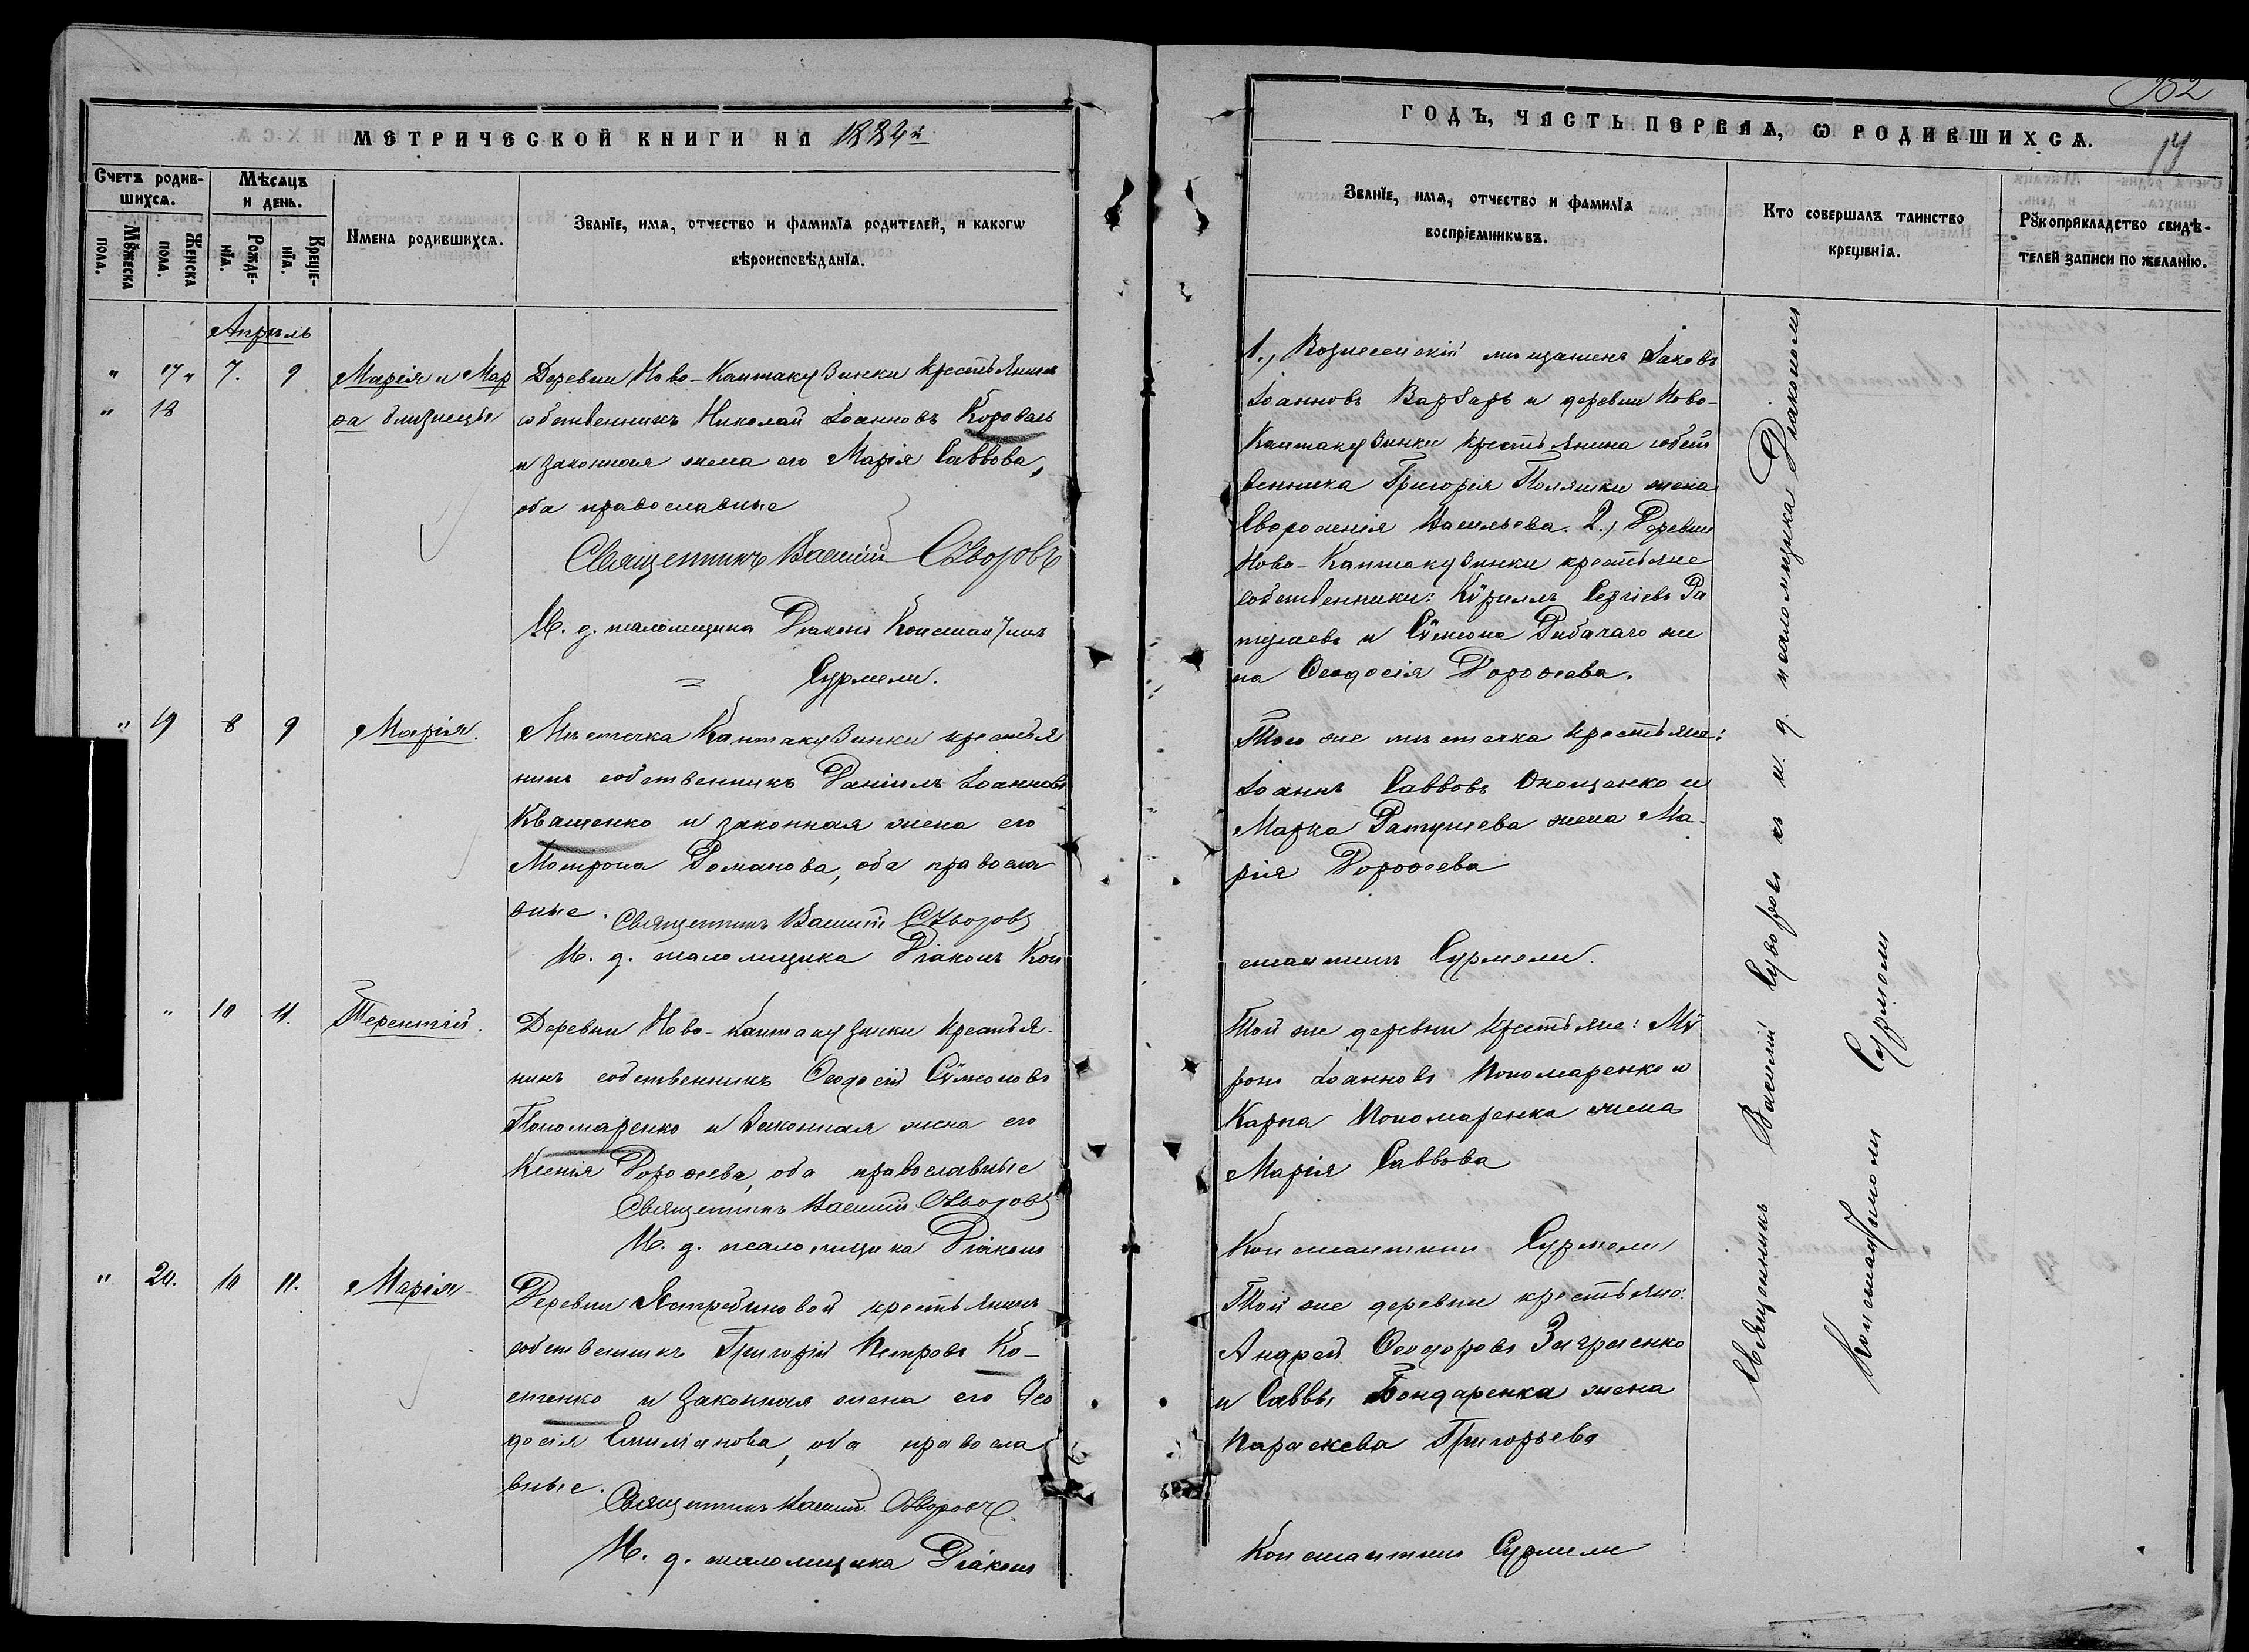 МЕТРИЧЕСКОЙ КНИГИ НА 1884й
Счетъ родив-
шихся.
Мѣсяцъ
и день.
Мꙋжеска
пола.
Женска
пола.
Рожде-
нїя.
Креще-
нїя.
Имена родившихся.
Званїе, имя, отчество и фамилїя родителей, и какогѡ
вѣроисповѣданїя.
Апрѣль
" 17 " 7. 9 Марія и Мар
" 18 ѳа близнецы
Деревни Ново-Кантакузинки крестьянинъ
собственникъ Николай Іоанновъ Короваль
и законная жена его Марія Саввова,
оба православные
Священникъ Василій Суворовъ
И. д. псаломщика Діаконъ Константинъ
= Сурмели.
" 19 8 9 Марія.
Мѣстечка Кантакузинки крестья
нинъ собственникъ Даніилъ Іоанновъ
Кващенко и законная жена его
Мотрона Романова, оба правосла
вные. Священникъ Василій Суворовъ
И. д. псаломщика Діаконъ Кон
" 10 11. Терентій.
Деревни Ново-Кантакузинки крестья-
нинъ собственникъ Ѳеодосій Сѵмеоновъ
Пономаренко и законная жена его
Ксенія Дороѳеева, оба православные
Священникъ Василій Суворовъ
И. д. псаломщика Діаконъ
" 20. 10 11. Марія
Деревни Ястребиновой крестьянинъ
собственникъ Григорій Петровъ Ко-
стенко и законная жена его Ѳео
досія Емиліанова, оба правосла
вные. Священникъ Василій Суворовъ
И. д. псаломщика Діаконъ
352
ГОДЪ, ЧАСТЬ ПЕРВАЯ, Ѡ РОДИВШИХСЯ.
14
Званїе, имя, отчество и фамилїя
воспрїемникѡвъ.
Кто совершалъ таинство
крещенїя.
Рꙋкоприкладство свидѣ-
телей записи по желанїю.
1., Вознесенскій мѣщанинъ Іаковъ
Іоанновъ Варбаръ и деревни Ново-
Кантакузинки крестьянина собст
венника Григорія Поляшки жена
Евфросинія Васильева. 2., Деревни
Ново-Кантакузинки крестьяне
собственники: Кѵриллъ Сергіевъ Ра
тушевъ и Сѵмеона Рибачаго же
на Ѳеодосія Дороѳеева.
Того же мѣстечка крестьяне:
Іоаннъ Саввовъ Онощенко и
Марка Ратушева жена Ма-
рія Дороѳеева
стантинъ Сурмели.
Той же деревни крестьяне: Мѵ
ронъ Іоанновъ Пономаренко и
Карпа Пономаренка жена
Марія Саввова
Константинъ Сурмели
Той же деревни крестьяне:
Андрей Ѳеодоровъ
и Саввы Бондаренка жена
Параскева Григорьева
Константинъ Сурмели
Священникъ Василій Суворовъ съ и. д. псаломщика Діакономъ
Константиномъ Сурмели